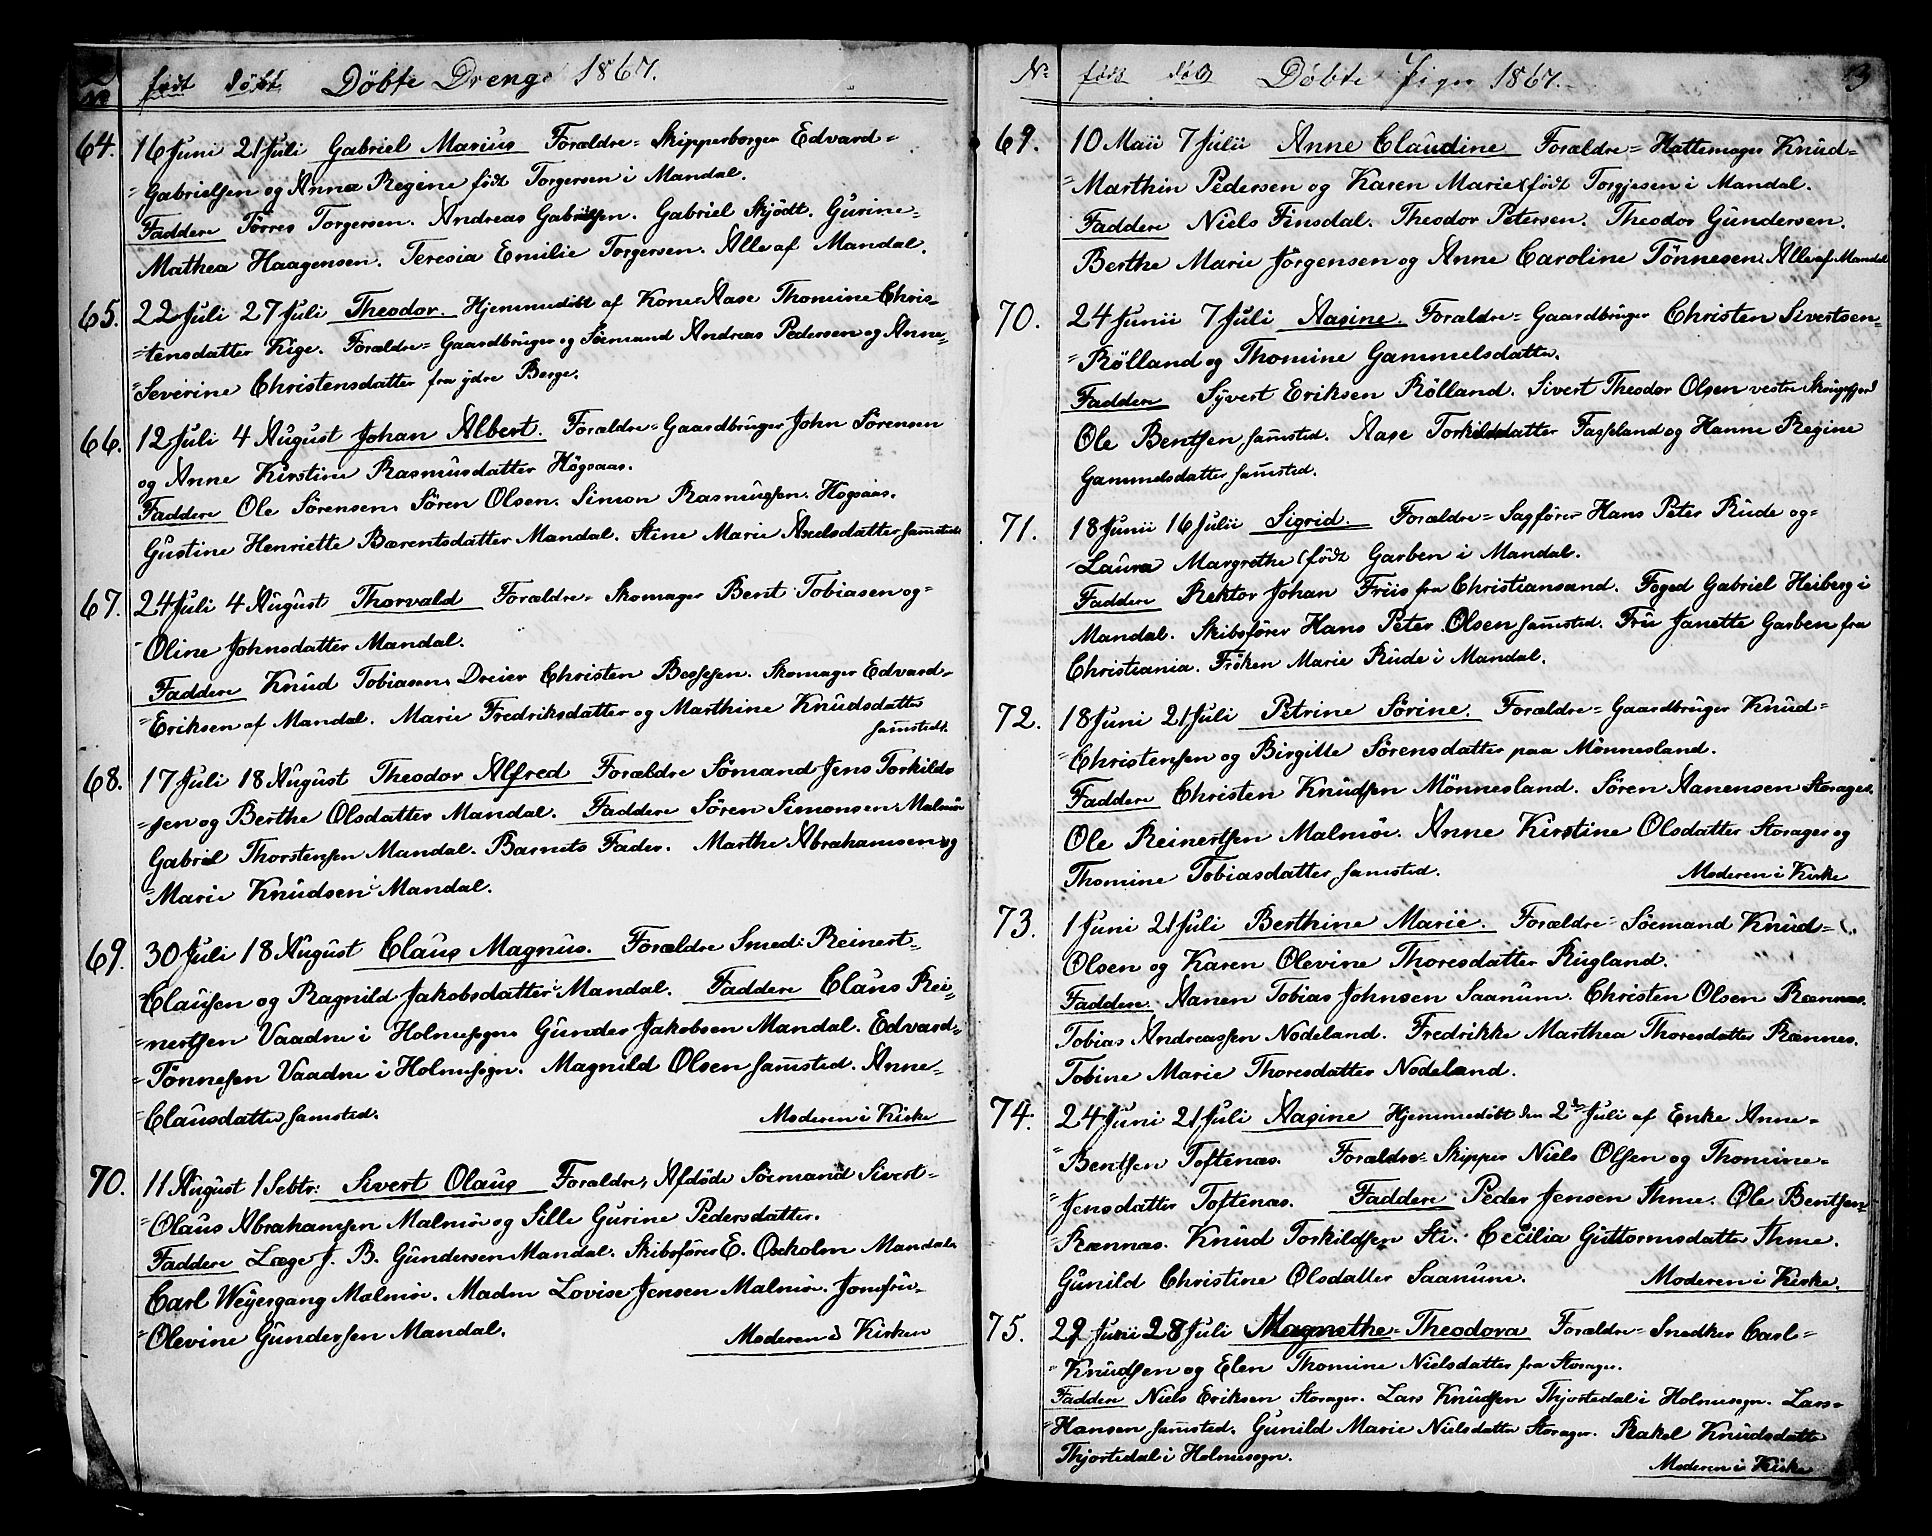 2
No født døbt Döbte Drenge 1867.
64. 16 Juni 21 Juli Gabriel Marius Forældre = Skipperborger Edvard =
= Gabrielsen og Anna Regine født Torgersen i Mandal.
Faddere Törres Torgersen. Andreas Gabrielsen. Gabriel Skjödt. Gurine =
Mathea Haagensen. Teresia Emilie Torgersen. Alle af Mandal.
65. 22 Juli 27 Juli Theodor. Hjemmedöbt af Kone Aase Thomine Chris =
= tensdatter Kige. Forældre = Gaardbruger og Sömand Andreas Pedersen og Anne =
= Severine Christensdatter fra ydre Berge.
66. 12 Juli 4 August Johan Albert. Forældre = Gaardbruger John Sörensen
og Anne Kirstine Rasmusdatter Högsaas.
Faddere Ole Sörensen. Sören Olsen. Simon Rasmussen. Högsaas.
Gustine Henriette Bærentsdatter Mandal. Stine Marie Axelsdatter samsteds
67. 24 Juli 4 August Thorvald Forældre = Skomager Bent Tobiasen og =
= Oline Johnsdatter Mandal.
Faddere Knud Tobiasen. Dreier Christen Bessesen. Skomager Edvard =
= Eriksen af Mandal. Marie Fredriksdatter og Marthine Knudsdatter
samsteds.
68. 17 Juli 18 August Theodor Alfred Forældre Sömand Jens Torkild =
= sen og Berthe Olsdatter Mandal. Faddere Sören Simonsen. Malmö
Gabriel Thorstensen Mandal. Barnets Fader. Marthe Abrahamsen og
= Marie Knudsen i Mandal.
69. 30 Juli 18 August Claus Magnus. Forældre Smed: Reinert =
= Clausen og Ragnild Jakobsdatter Mandal. Faddere Claus Rei =
= nertsen Vaadne i Holmesogn. Gunder Jakobsen Mandal. Edvard =
= Tönnesen Vaadne i Holmesogn. Magnild Olsen samsted. Anne =
= Clausdatter samsted. Moderen i Kirke
70. 11 August 1 Sebtr: Sivert Olaus Forældre, Afdöde Söemand Sivert =
= Olaus Abrahamsen Malmö og Sille Gurine Pedersdatter.
Faddere Læge J. B. Gundersen Mandal. Skibsförer E. Oxholm Mandal.
Carl Weyergang Malmö. Madm Lovise Jensen Malmö. Jomfru =
= Olevine Gundersen Mandal. Moderen i Kirken
No født døbt Döbte Piger 1867. 3
69. 10 Maii 7 Julii Anne Claudine Forældre = Hattemager Knud =
= Marthin Pedersen og Karen Marie (født Torgjesen i Mandal.
Faddere Niels Finsdal. Theodor Petersen. Theodor Gundersen.
Berthe Marie Jörgensen og Anne Caroline Tönnesen Alle af Mandal
70. 24 Junii 7 Juli Aasine Forældre = Gaardbruger Christen Sivertsen =
= Rölland og Thomine Gammelsdatter.
Faddere Syvert Eriksen Rölland. Sivert Theodor Olsen vestre Skrugefjord
Ole Bentsen samsted. Aase Torkildsdatter Fasseland og Hanne Regine
Gammelsdatter samsted.
71. 18 Junii 16 Julii Sigrid. Forældre = Sagförer Hans Peter Rude og =
= Laura Margrethe (født Garben i Mandal.
Faddere Rektor Johan Friis fra Christiansand. Foged Gabriel Heiberg i
Mandal. Skibsförer Hans Peter Olsen samsted. Fru Janette Garben fra
Christiania. Fröken Marie Rude i Mandal.
72. 18 Juni 21 Juli Petrine Sörine. Forældre = Gaardbruger Knud =
= Christensen og Birgitte Sörensdatter paa Mönnesland.
Faddere Christen Knudsen Mönnesland. Sören Aanensen Storager.
Ole Reinertsen Malmö. Anne Kirstine Olsdatter Storager og
Thomine Tobiasdatter samsted. Moderen i Kirke
73. 1 Juni 21 Juli Berthine Marie. Forældre = Söemand Knud =
Olsen og Karen Olevine Thoresdatter Rugland.
Faddere. Aanen Tobias Johnsen Saanum. Christen Olsen Rænnes.
Tobias Andreassen Nodeland. Fredrikke Marthea Thoresdatter Rænnes.
Tobine Marie Thoresdatter Nodeland.
74. 24 Juni 21 Juli Aasine Hjemmedöbt den 2de Juli af Enke Anne =
= Bentsen Toftenæs. Forældre = Skipper Niels Olsen og Thomine =
= Jensdatter Toftenæs. Faddere Peder Jensen Ihme. Ole Bentsen =
= Rænnæs. Knud Torkildsen Sli. Cecilia Guttormsdatter Ihme.
Gunild Christine Olsdatter Saanum. Moderen i Kirke.
75. 22 Junii 28 Juli Magnethe = Theodora Forældre = Snedker Carl =
= Knudsen og Elen Thomine Nielsdatter fra Storager.
Faddere Niels Eriksen Storager. Lars Knudsen Thjortedal i Holmesogn. Lars =
= Hansen samsted. Gunild Marie Nielsdatter Storager. Rakel Knudsdatter
Thjortedal i Holmesogn. Moderen i Kirke